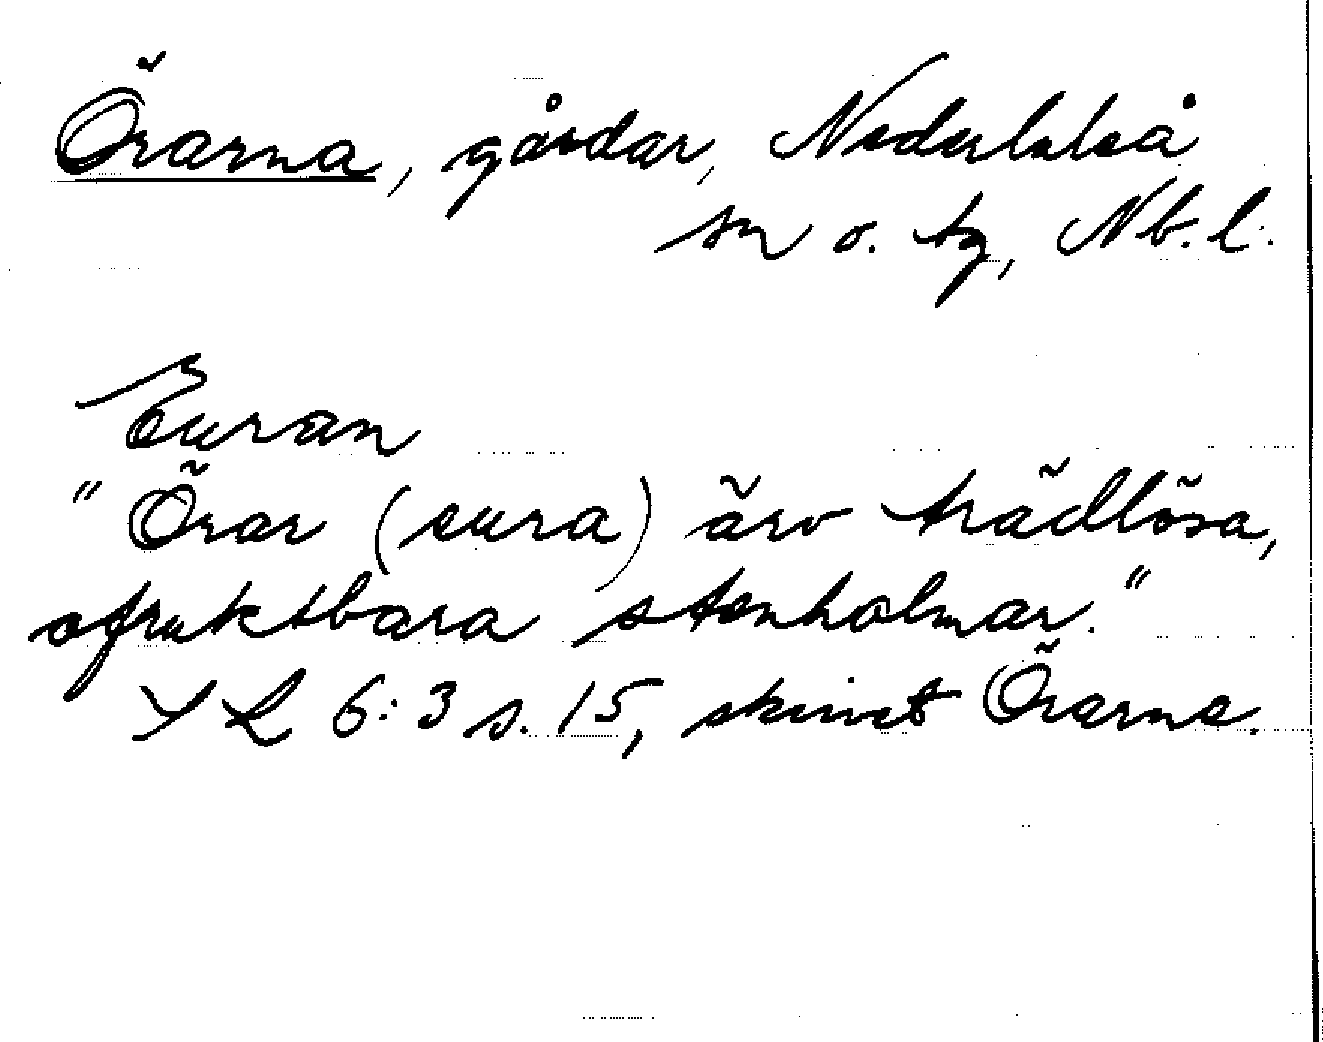 Örarna, gårdar, Nederluleå
sn o. tg, Nb. l.
Euran
"Örar (eura) äro trädlösa,
ofruktbara stenholmar."
SL 6:3 s. 15, skrivet Örarne.